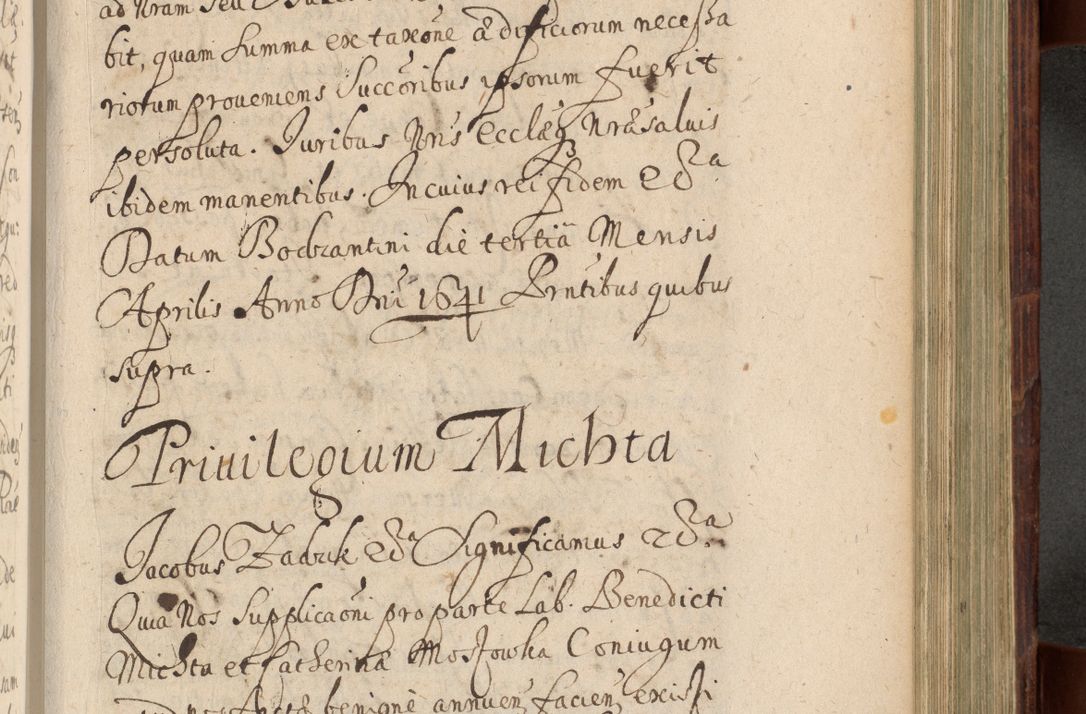 ad Nram seu
bit, quam summa ex taxõne ædificiorum necessa
riorum proveniens Succoribus ipsorum fuerit
persoluta. Iuribus Nris Ecclæq Nrã salvis
ibidem manentibus. In cuius rei fidem &c̃a.
Datum Bodzantini die tertiã Mensis
Aprilis Anno Dni 1641 Prntibus quibus
supra.
Privilegium Michta
Iacobus Zadzik &c̃a Significamus &c̃a.
Quia Nos Supplicaõni pro parte Lab. Benedicti
Michta et Catherina Mosiowka Coniugum
benignè annuen facien